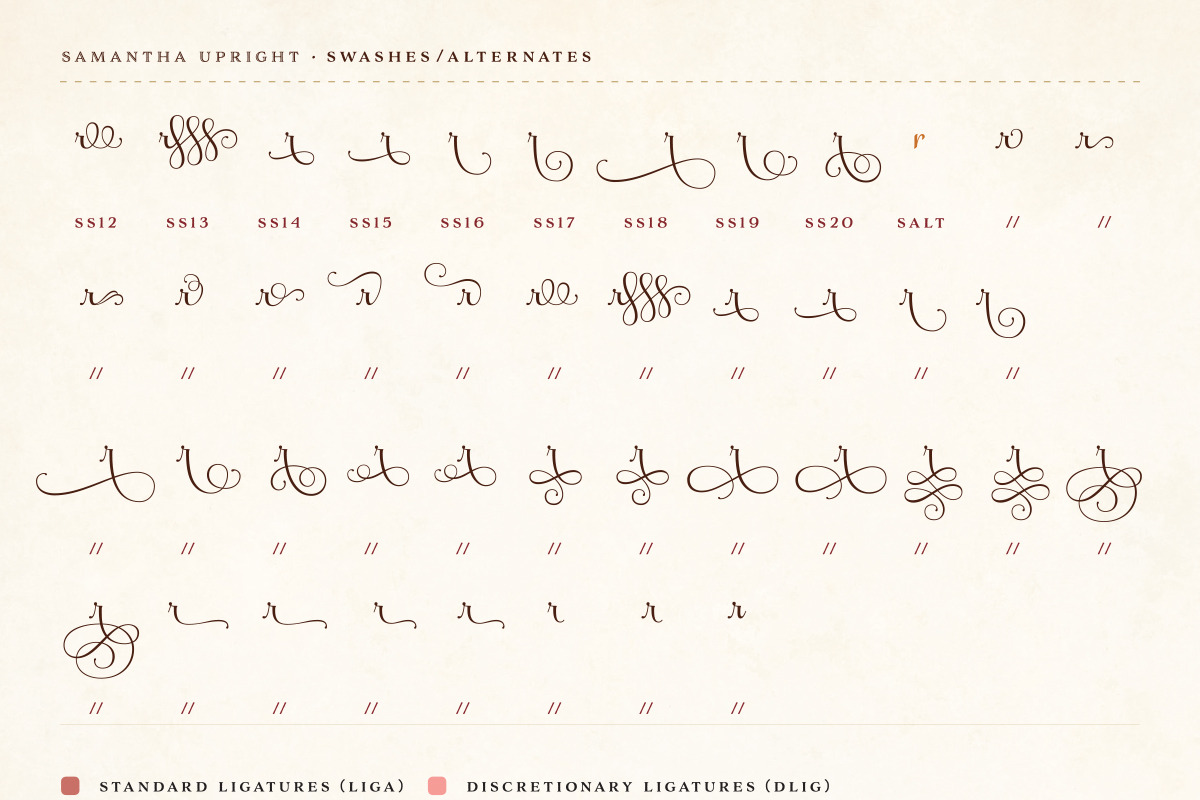 SAMANTHA UPRIGHT · SWASHES/ALTERNATES
r r r r r r r r r r r r
SS12 SS13 SS14 SS15 SS16 SS17 SS18 SS19 SS20 SALT // //
r r r r r r r r r r r
// // // // // // // // // // //
r r r r r r r r r r r r
// // // // // // // // // // // //
r r r r r r r r
// // // // // // // //
STANDARD LIGATURES (LIGA) DISCRETIONARY LIGATURES (DLIG)